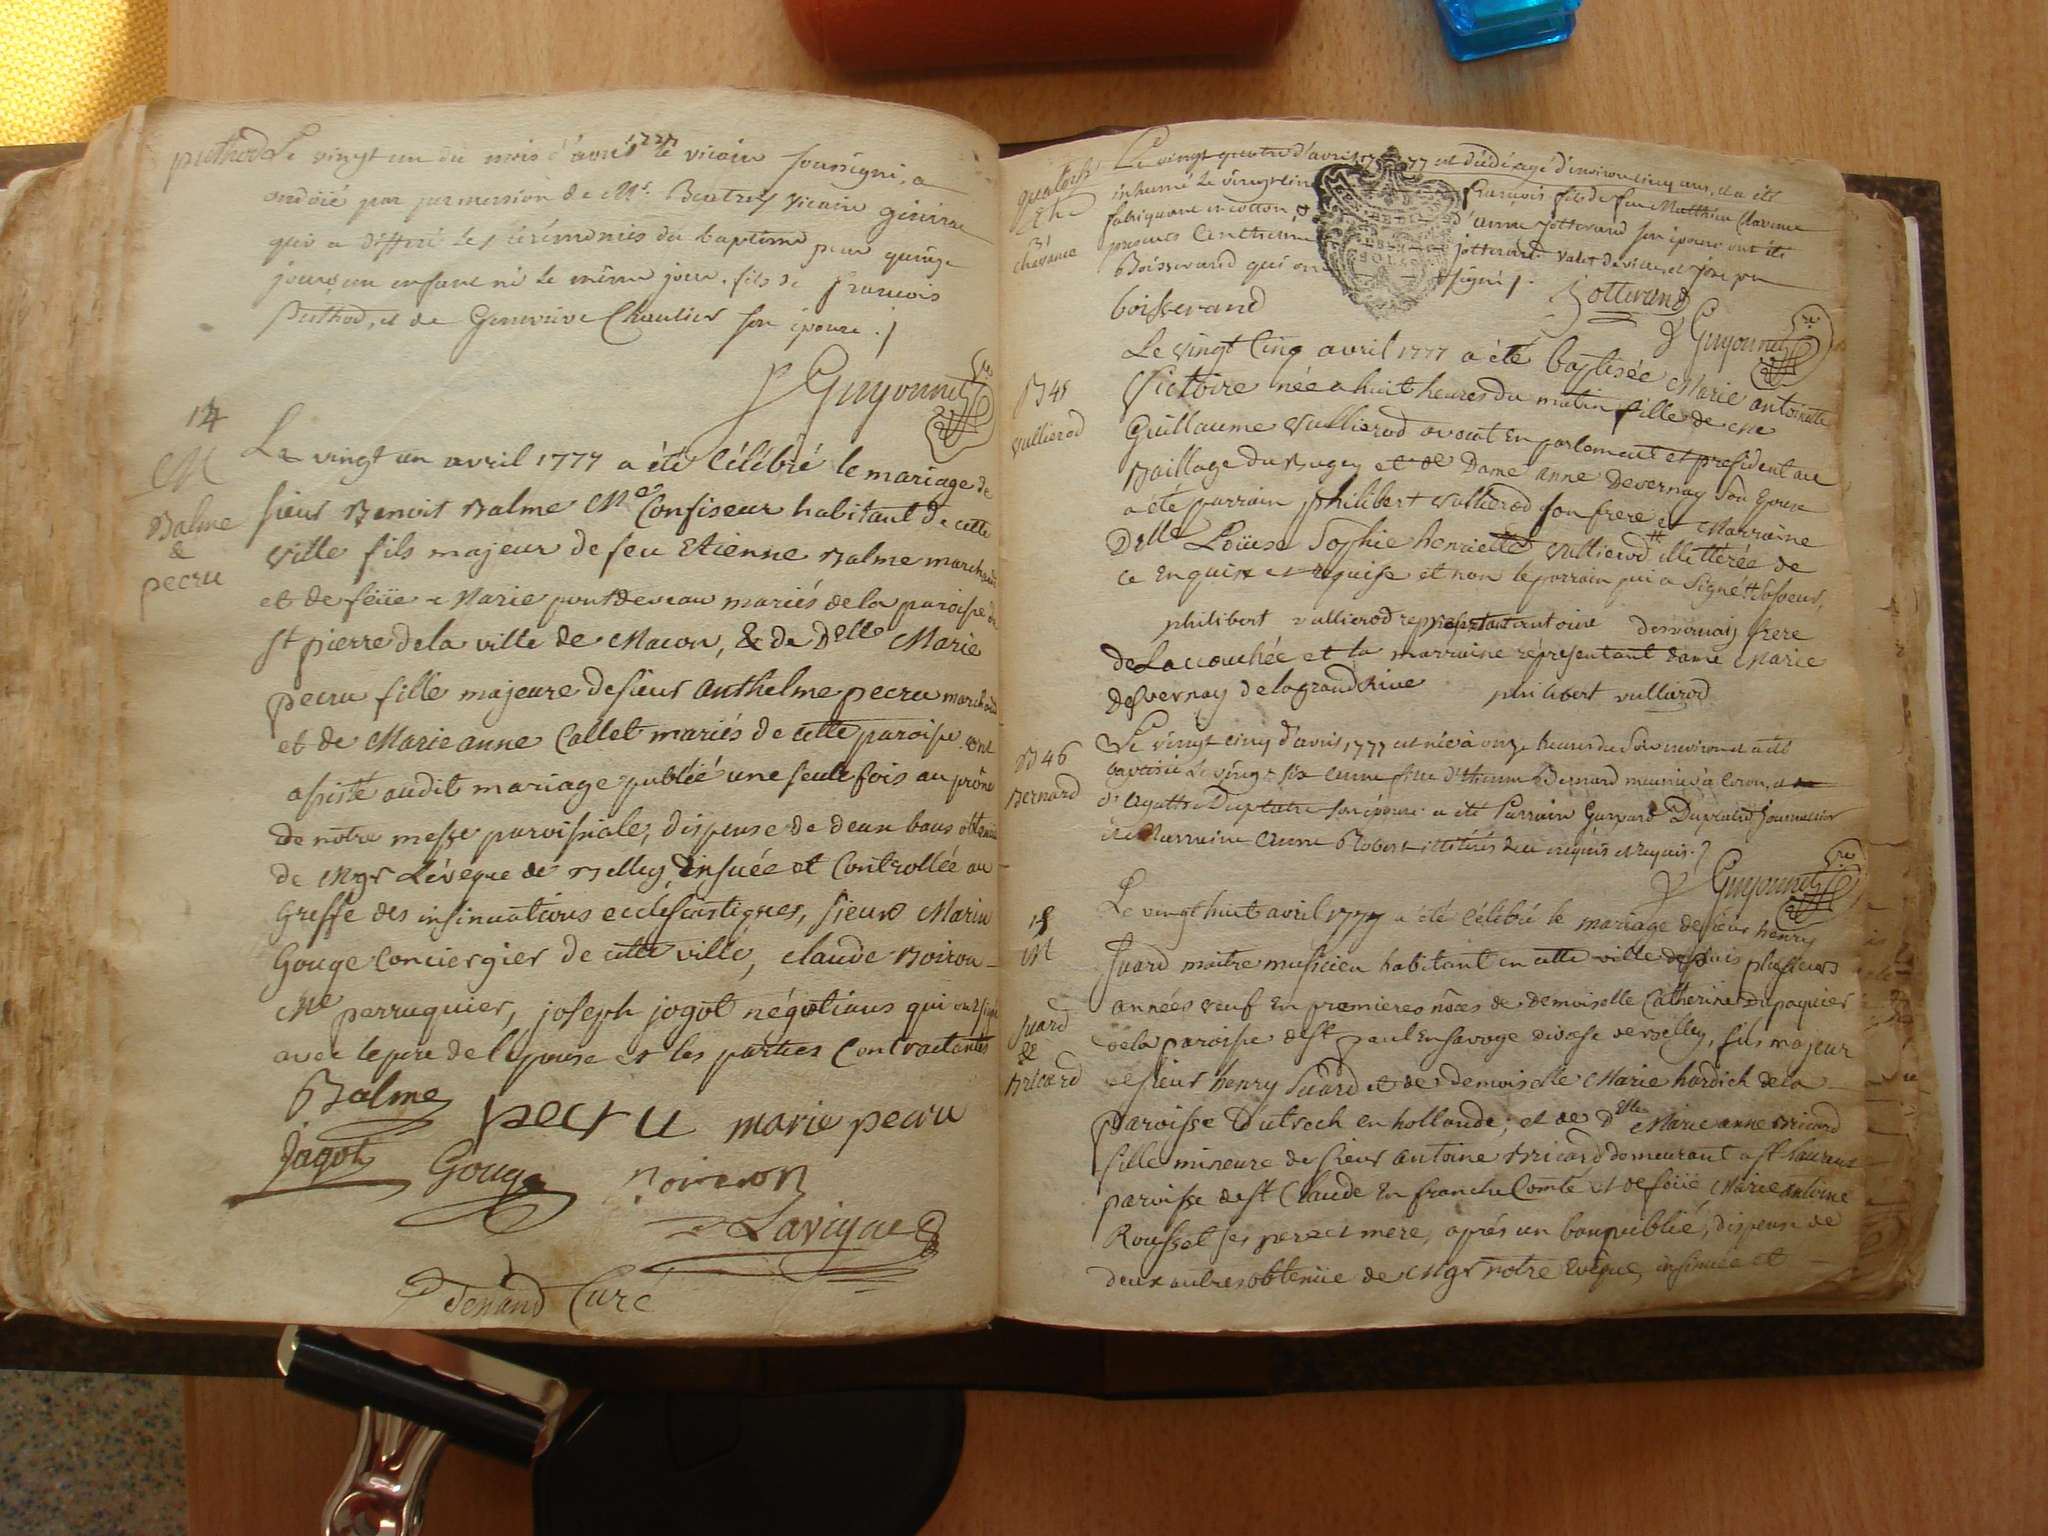 puthod
Le vingt un du mois d'avril 1777 le vicaire soussigné, a
ondoié par permission de Mr. vicaire général
qui a differé les cérémonies du baptême pour quinze
jours, un enfant né le même jour, fils de françois
Puthod, et de Genevieve Chaulier son épouse ./
Guyonnet
14
M
Balme
&
pecru
Le vingt un avril 1777 a été célébré le mariage de
sieur Benoit Balme Me Confiseur habitant de cette
ville fils majeur de feu Etienne Balme marchand
et de feüe Marie pontdeveau mariés de la paroisse de
st pierre de la ville de Macon, & de Delle Marie
pecru fille majeure de sieur anthelme pecru marchand
et de Marie anne Callet mariés de cette paroisse. ont
assisté audit mariage publié une seule fois au prône
de nôtre messe paroissiale, dispense de deux bans obtenüe
de Mgr L'évêque de Belley insinuée et Controllée au
Greffe des insinuations ecclesiastiques, sieurs Marin
Gouge Conciergier de cette ville, claude Boiron
Me perruquier, joseph jagot négotians qui ont signé
avec le pere de l'épouse et les parties Contractantes
Balme pecru marie pecru
Jagot Gouge Boiron
Lavigne
Tenand Curé
Chavance
Le vingt quatre d'avril 1777 est décédé agé d'environ cinq ans, et a été
inhumé le vingt cinq françois fils de feu Matthieu Chavance
fabriquant en cotton, & d'anne Jotterand son épouse ont été
presents Anthelme jotterand valet de ville, et
Boisserand qui ont signé ./.
boisserand Jotterand
Guyonnet
B 45
Vullierod
Le vingt Cinq avril 1777 a été baptisée Marie antoinette
Victoire née a huit heures du matin fille de Me
Guillaume Vullierod avocat En parlement et president au
Baillage du Bugey et de Dame anne Devernay son Epouse
a été parrain philibert Vullierod son frere et Marraine
Delle Loüise Sophie henriette Vullierod # illettérée de
ce Enquise et requise et non le parrain qui a signé # sa soeur,
philibert vullierod representant antoine desvernay frere
de Laccouchée et la marraine réprésentant dame Marie
Desvernay de la grand Rive philibert vullierod
B 46
Bernard
Le vingt cinq d'avril 1777 est née à onze heures du soir environ et a été
baptisée le vingt six Anne fille d'Etienne Bernard meunier à Coron, et
d'Agathe Duplatre son épouse a été Parrain Gaspard Journalier
et Marraine Anne Robert illétérés de ce enquis et requis ./
Guyonnet
15
M
Suard
&
Bricard
Le vingt huit avril 1777 a été Célébré le mariage de sieur henry
Suard maitre musicien habitant en cette ville depuis plusieurs
années veuf En premieres nôces de demoiselle Catherine Dupaquier
de la paroisse de st paul En savoye diocese de Belley, fils majeur
de sieur henry Suard et de demoiselle Marie hardich de la
paroisse Dutrech en hollande; et de Delle Marie anne Bricard
fille mineure de sieur antoine Bricard demeurant a st Laurent
paroisse de st Claude En franche Comté et de feüe Marie antoine
Rousset ses pere et mere, aprés un ban publié, dispense de
deux autres obtenüe de Mgr nôtre Evêque, insinuée et